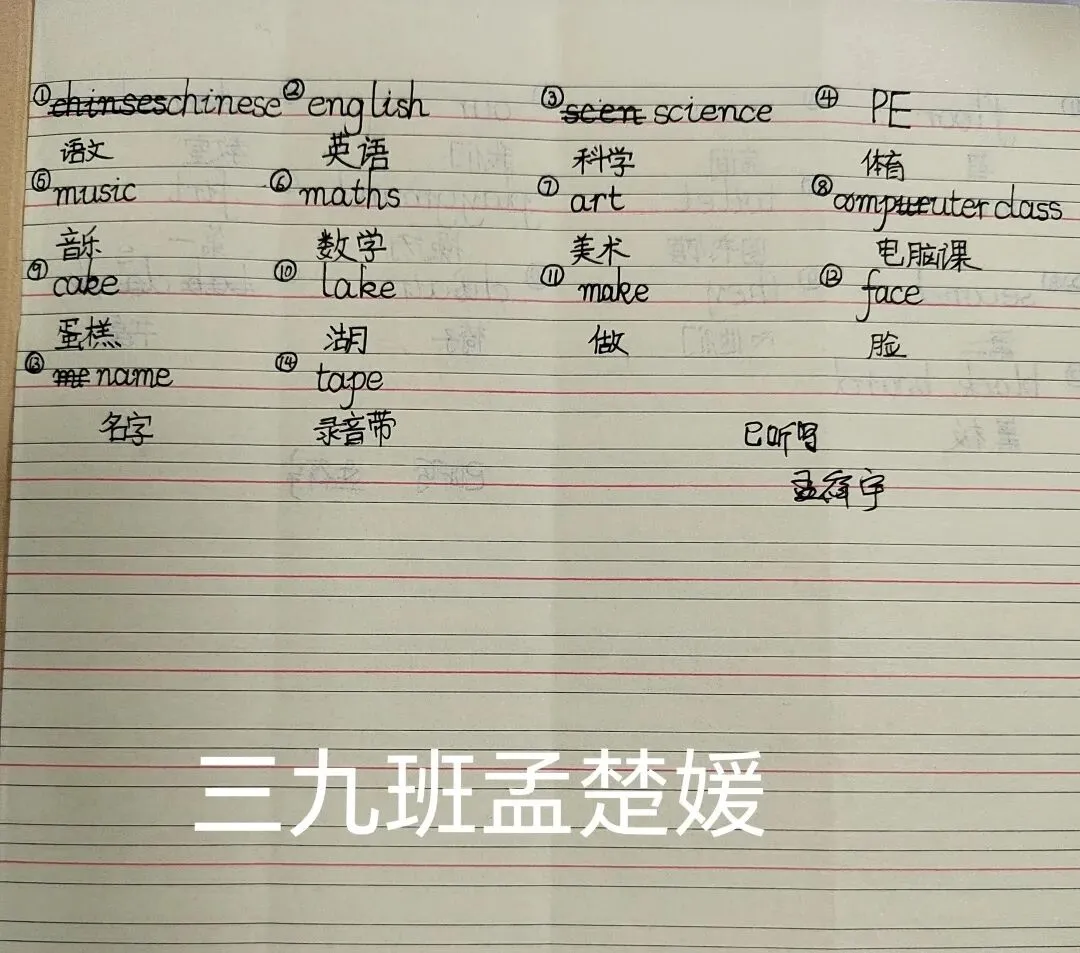 ① chinses chinese ② english ③ scen science ④ PE
语文 英语 科学 体育
⑤ music ⑥ maths ⑦ art ⑧ computer class
音乐 数学 美术 电脑课
⑨ cake ⑩ lake ⑪ make ⑫ face
蛋糕 湖 做 脸
⑬ me name ⑭ tape
名字 录音带
已听写
孟 宇
三九班孟楚媛